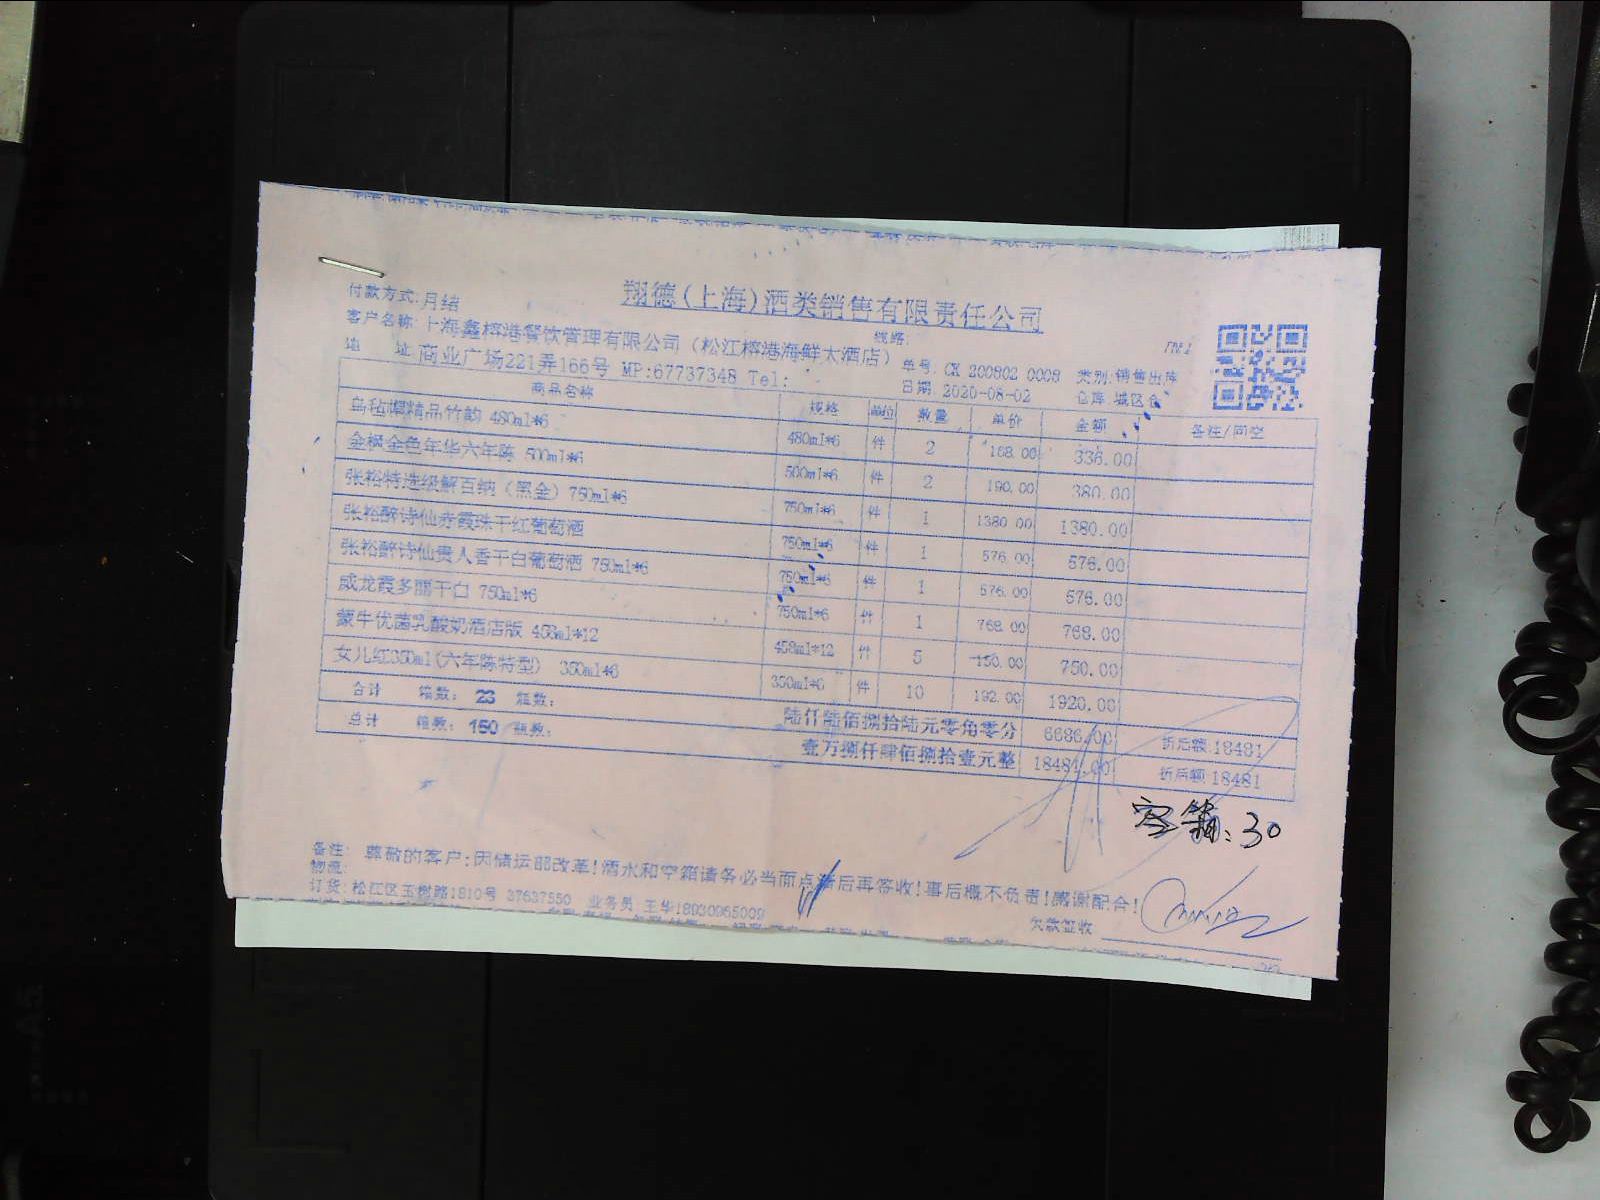 翔德(上海)酒类销售有限责任公司
付款方式:月结
客户名称:上海鑫榕港餐饮管理有限公司（松江榕港海鲜大酒店） 线路:
地 址:商业广场221弄166号 MP:67737348 Tel: 单号: CK 200802 0008 类别:销售出库
日期: 2020-08-02 仓库:城区仓
商品名称 规格 单位 数量 单价 金额 备注/回空
乌毡帽精品竹韵 480ml*6 480ml*6 件 2 168.00 336.00
金枫金色年华六年陈 500ml*6 500ml*6 件 2 190.00 380.00
张裕特选级解百纳（黑金）750ml*6 750ml*6 件 1 1380.00 1380.00
张裕醉诗仙赤霞珠干红葡萄酒 750ml*6 件 1 576.00 576.00
张裕醉诗仙贵人香干白葡萄酒 750ml*6 750ml*6 件 1 576.00 576.00
威龙霞多丽干白 750ml*6 750ml*6 件 1 768.00 768.00
蒙牛优菌乳酸奶酒店版 458ml*12 458ml*12 件 5 150.00 750.00
女儿红350ml(六年陈特型) 350ml*6 350ml*6 件 10 192.00 1920.00
合计 箱数: 23 瓶数: 陆仟陆佰捌拾陆元零角零分 6686.00 折后额:18481
总计 箱数: 150 瓶数: 壹万捌仟肆佰捌拾壹元整 18481.00 折后额:18481
空箱:30
备注: 尊敬的客户:因储运部改革!酒水和空箱请务必当面点清后再签收!事后概不负责!感谢配合!
物流:
订货:松江区玉树路1810号 37637550 业务员:王华18930965009
欠款签收